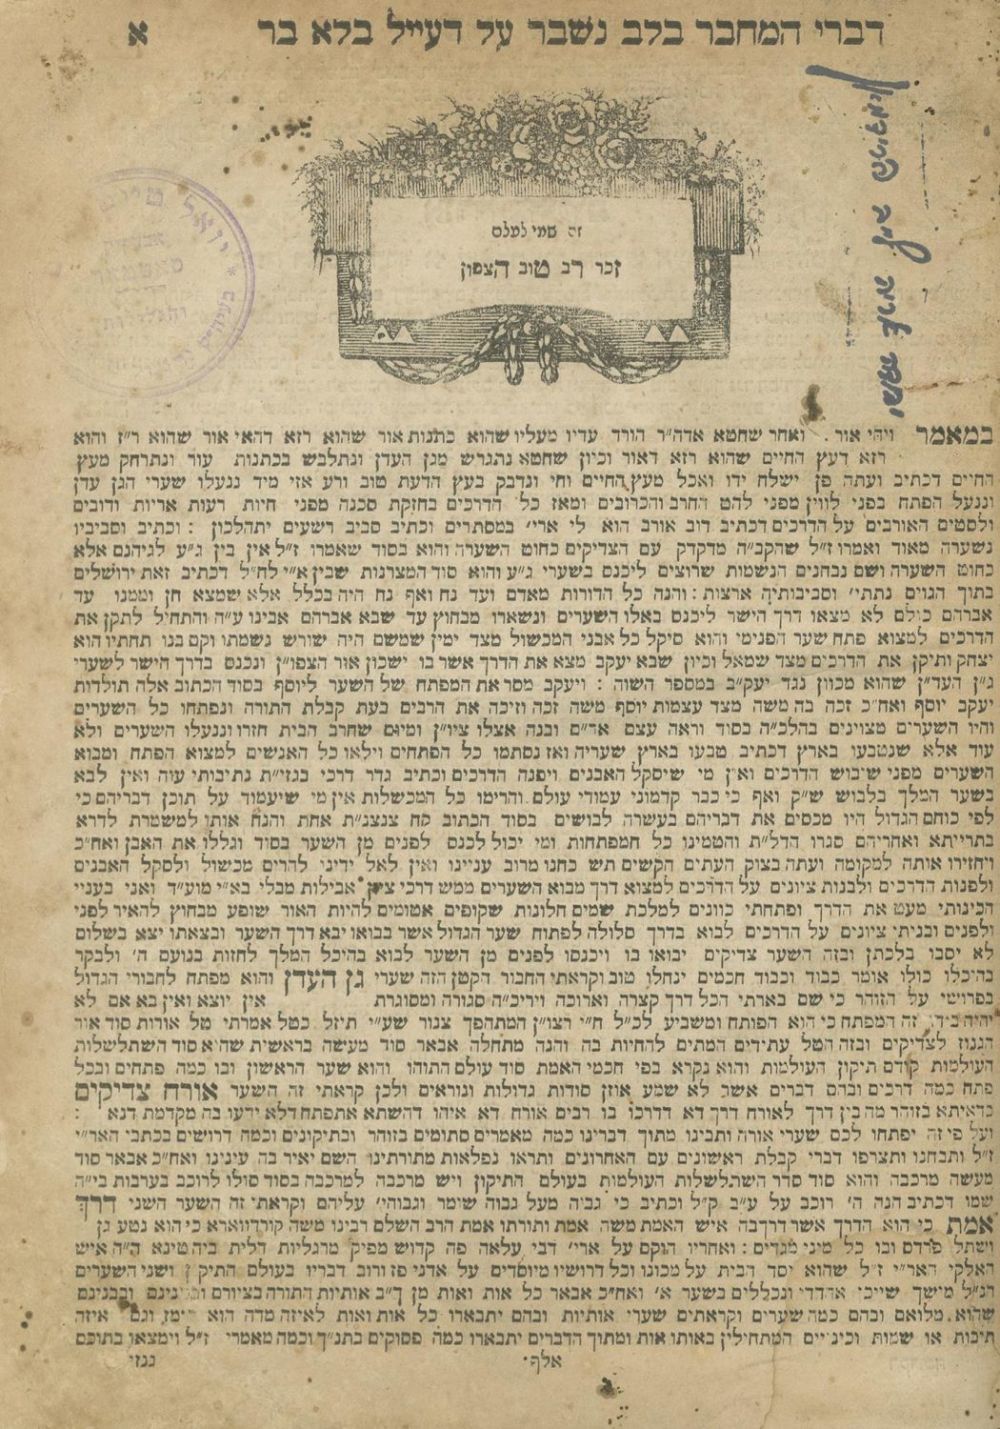 דברי המחבר בלב נשבר על דעייל בלא בר
א
זה שמי לעלם
זכר רב טוב הצפון
במאמר ויהי אור . ואחר שחטא אדה״ר הורד עדיו מעליו שהוא כתנות אור שהוא רזא דהאי אור שהוא ר״ז והוא
רזא דעץ החיים שהוא רזא דאור וכיון שחטא נתגרש מגן העדן ונתלבש בכתנות עור ונתרחק מעץ
החיים דכתיב ועתה פן ישלח ידו ואכל מעץ החיים וחי ונדבק בעץ הדעת טוב ורע אזי מיד ננעלו שערי הגן עדן
וננעל הפתח בפני לווין מפני להט החרב והכרובים ומאז כל הדרכים בחזקת סכנה מפני חיות רעות אריות ודובים
ולסטים האורבים על הדרכים דכתיב דוב אורב הוא לי ארי׳ במסתרים וכתיב סביב רשעים יתהלכון : וכתיב וסביביו
נשערה מאוד ואמרו ז״ל שהקב״ה מדקדק עם הצדיקים כחוט השערה והוא בסוד שאמרו ז״ל אין בין ג״ע לגיהנם אלא
כחוט השערה ושם נבחנים הנשמות שרוצים ליכנס בשערי ג״ע והוא סוד המצרנות שבין א״י לח״ל דכתיב זאת ירושלים
בתוך הגוים נתתי׳ וסביבותיה ארצות : והנה כל הדורות מאדם ועד נח ואף נח היה בכלל אלא שמצא חן וטמנו עד
אברהם כולם לא מצאו דרך הישר ליכנס באלו השערים ונשארו מבחוץ עד שבא אברהם אבינו ע״ה והתחיל לתקן את
הדרכים למצוא פתח שער הפנימי והוא סיקל כל אבני המכשול מצד ימין שמשם היה שורש נשמתו וקם בנו תחתיו הוא
יצחק ותיקן את הדרכים מצד שמאל וכיון שבא יעקב מצא את הדרך אשר בו ישכון אור הצפו״ן ונכנס בדרך הישר לשערי
ג״ן העד״ן שהוא מכוון נגד יעק״ב במספר השוה : ויעקב מסר את המפתח של השער ליוסף בסוד הכתוב אלה תולדות
יעקב יוסף ואח״כ זכה בה משה מצד עצמות יוסף משה זכה וזיכה את הרבים בעת קבלת התורה ונפתחו כל השערים
והיו השערים מצוינים בהלכ״ה בסוד וראה עצם אד״ם ובנה אצלו ציו״ן ומיום שחרב הבית חזרו וננעלו השערים ולא
עוד אלא שנטבעו בארץ דכתיב טבעו בארץ שעריה ואז נסתמו כל הפתחים וילאו כל האנשים למצוא הפתח ומבוא
השערים מפני שיבוש הדרכים ואין מי שיסקל האבנים ויפנה הדרכים וכתיב גדר דרכי בגזי״ת נתיבותי עוה ואין לבא
בשער המלך בלבוש ש״ק ואף כי כבר קדמוני עמודי עולם והרימו כל המכשלות אין מי שיעמוד על תוכן דבריהם כי
לפי כוחם הגדול היו מכסים את דבריהם בעשרה לבושים בסוד הכתוב קח צנצנ״ת אחת והנח אותו למשמרת לדרא
בתרייתא ואחריהם סגרו הדל״ת והטמינו כל המפתחות ומי יכול לכנס לפנים מן השער בסוד וגללו את האבן ואח״כ
ויחזירו אותה למקומה ועתה בצוק העתים הקשים תש כחנו מרוב עניינו ואין לאל ידינו להרים מכשול ולסקל האבנים
ולפנות הדרכים ולבנות ציונים על הדרכים למצוא דרך מבוא השערים ממש דרכי ציון אבילות מבלי בא״י מוע״ד ואני בעניי
הכינותי מעט את הדרך ופתחתי כוונים למלכת שמים חלונות שקופים אטומים להיות האור שופע מבחוץ להאיר לפני
ולפנים ובניתי ציונים על הדרכים לבוא בדרך סלולה לפתוח שער הגדול אשר בבואו יבא דרך השער ובצאתו יצא בשלום
לא יסבו בלכתן ובזה השער צדיקים יבואו בו ויכנסו לפנים מן השער לבוא בהיכל המלך לחזות בנועם ה׳ ולבקר
בהיכלו כולו אומר כבוד וכבוד חכמים ינחלו טוב וקראתי החבור הקטן הזה שערי גן העדן והוא מפתח לחבורי הגדול
בפרושי על הזוהר כי שם בארתי הכל דרך קצרה וארוכה ויריכ״ה סגורה ומסוגרת אין יוצא ואין בא אם לא
יהיה בידו זה המפתח כי הוא הפותח ומשביע לכ״ל ח״י רצו״ן המתהפך צנור שע״י תיזל כטל אמרתי טל אורות סוד אור
הגנוז לצדיקים ובזה הטל עתידים המתים להחיות בה והנה מתחלה אבאר סוד מעשה בראשית שהיא סוד השתלשלות
העולמות קודם תיקון העולמות והוא נקרא בפי חכמי האמת סוד עולם התוהו והוא שער הראשון ובו כמה פתחים ובכל
פתח כמה דרכים ובהם דברים אשר לא שמע אוזן סודות גדולות ונוראים ולכן קראתי זה השער אורח צדיקים
כדאיתא בזוהר מה בין דרך לאורח דרך דא דדרכו בו רבים אורח דא איהו דהשתא אתפתח דלא ידעו בה מקדמת דנא :
ועל פי זה יפתחו לכם שערי אורה ותבינו מתוך דברינו כמה מאמרים סתומים בזוהר ובתיקונים וכמה דרושים בכתבי האר״י
ז״ל ותבחנו ותצרפו דברי קבלת ראשונים עם האחרונים ותראו נפלאות מתורתינו השם יאיר בה עינינו ואח״כ אבאר סוד
מעשה מרכבה והוא סוד סדר השתלשלות העולמות בעולם התיקון ויש מרכבה למרכבה בסוד סולו לרוכב בערבות בי״ה
שמו דכתיב הנה ה׳ רוכב על ע״ב ק״ל וכתיב כי גביה מעל גבוה שומר וגבוהי׳ עליהם וקראתי זה השער השני דרך
אמת כי הוא הדרך אשר דרך בה איש האמת משה אמת ותורתו אמת הרב השלם רבינו משה קורדווארא כי הוא נטע גן
ושתל פרדס ובו כל מיני מגדים : ואחריו הוקם על ארי׳ דבי עלאה פה קדוש מפיק מרגליות דלית ביה טינא ה״ה איש
האלקי האר״י ז״ל שהוא יסד הבית על מכונו וכל דרושיו מיוסדים על אדני פז ורוב דבריו בעולם התיקון ושני השערים
הנ״ל מישך שייכי אהדדי ונכללים בשער א׳ ואח״כ אבאר כל אות ואות מן כ״ב אותיות התורה בציורם ובנינם ובבנינם
שהוא מלואם ובהם כמה שערים וקראתים שערי אותיות ובהם יתבארו כל אות ואות לאיזה מדה הוא רומז וגם איזה
תיבות או שמות וכינויים המתחילין באותו אות ומתוך הדברים יתבארו כמה פסוקים בתנ״ך וכמה מאמרי ז״ל וימצאו בתוכם
אלף׳
גנזי